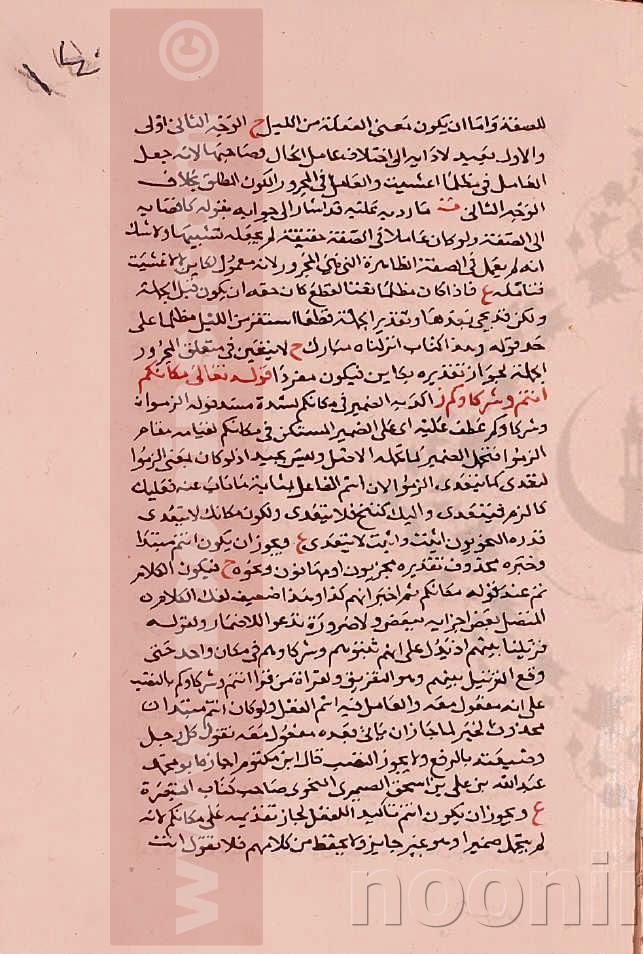 للصفة واما ان يكون بمعنى الفعلة من الليل ح الوجه الثانى اولى
والاول بعيد لادايه الى اختلاف عامل الحال وصاحبها لانه جعل
العامل فى مظلما اغشيت والعامل فى المجرور الكون المطلق بخلاف
الوجه الثانى ما رد به عليه قد اشار الى جوابه بقوله كافضايه
الى الصفة ولو كان عاملا فى الصفة حقيقة لم يجعله تشبيها ولا شك
انه لم يعمل فى الصفة الظاهرة التى هى المجرور لانه معمول لكاين لا لاغشيت
فتامله ع فاذا كان مظلما نعتا لقطع كان حقه ان يكون قبل الجملة
ولكن قد يجى بعدها وتقدير الجملة قطعا استقر من الليل مظلما على
حد قوله وهذا كتاب انزلناه مبارك ح لا يتعين فى متعلق المجرور
الجملة لجواز تقديره بكاين فيكون مفردا قوله تعالى مكانكم
انتم وشركاوكم ز اكد به الضمير فى مكانكم لسده مسد قوله الزموا
وشركاوكم عطف عليه اى على الضمير المستكن فى مكانكم لقيامه مقام
الزموا فتحمل الضمير كما تحمله الاصل وليس بجيد اذ لو كان بمعنى الزموا
لتعدى كما يتعدى الزموا لان اسم الفاعل بمثابة ما ناب عنه فعليك
كالزم فيتعدى واليك كتنح فلا يتعدى ولكونه مكانك لا يتعدى
قدره النحويون اثبت واثبت لا يتعدى ع ويجوز ان يكون انتم مبتدا
وخبره محذوف تقديره مخزيون او مهانون ونحوه ح فيكون الكلام
تم عند قوله مكانكم ثم اخبر انهم كذا وهذا ضعيف لفك الكلام
المتصل بعض اجزايه ببعض ولا ضرورة تدعو للاضمار ولقوله
فزيلنا بينهم اذ يدل على انهم ثبتوهم وشركاوهم فى مكان واحد حتى
وقع التزييل بينهم وهو التفريق ولقراة من قرا انتم وشركاكم بالنصب
على انه مفعول معه والعامل فيه اسم الفعل ولو كان انتم مبتدا
محذوف الخبر لما جاز ان ياتى بعده مفعول معه تقول كل رجل
وضيعته بالرفع ولا يجوز النصب قال ابن مكتوم اجازه ابو محمد
عبد الله بن على بن اسحق الصيمرى النحوى صاحب كتاب التبصرة
ع ويجوز ان يكون انتم تاكيد اللفعل لجاز تقديمه على مكانكم لانه
لم يتحمل ضميرا وهو غير جايز ولا يحفظ من كلامهم فلا تقول انت
noonin